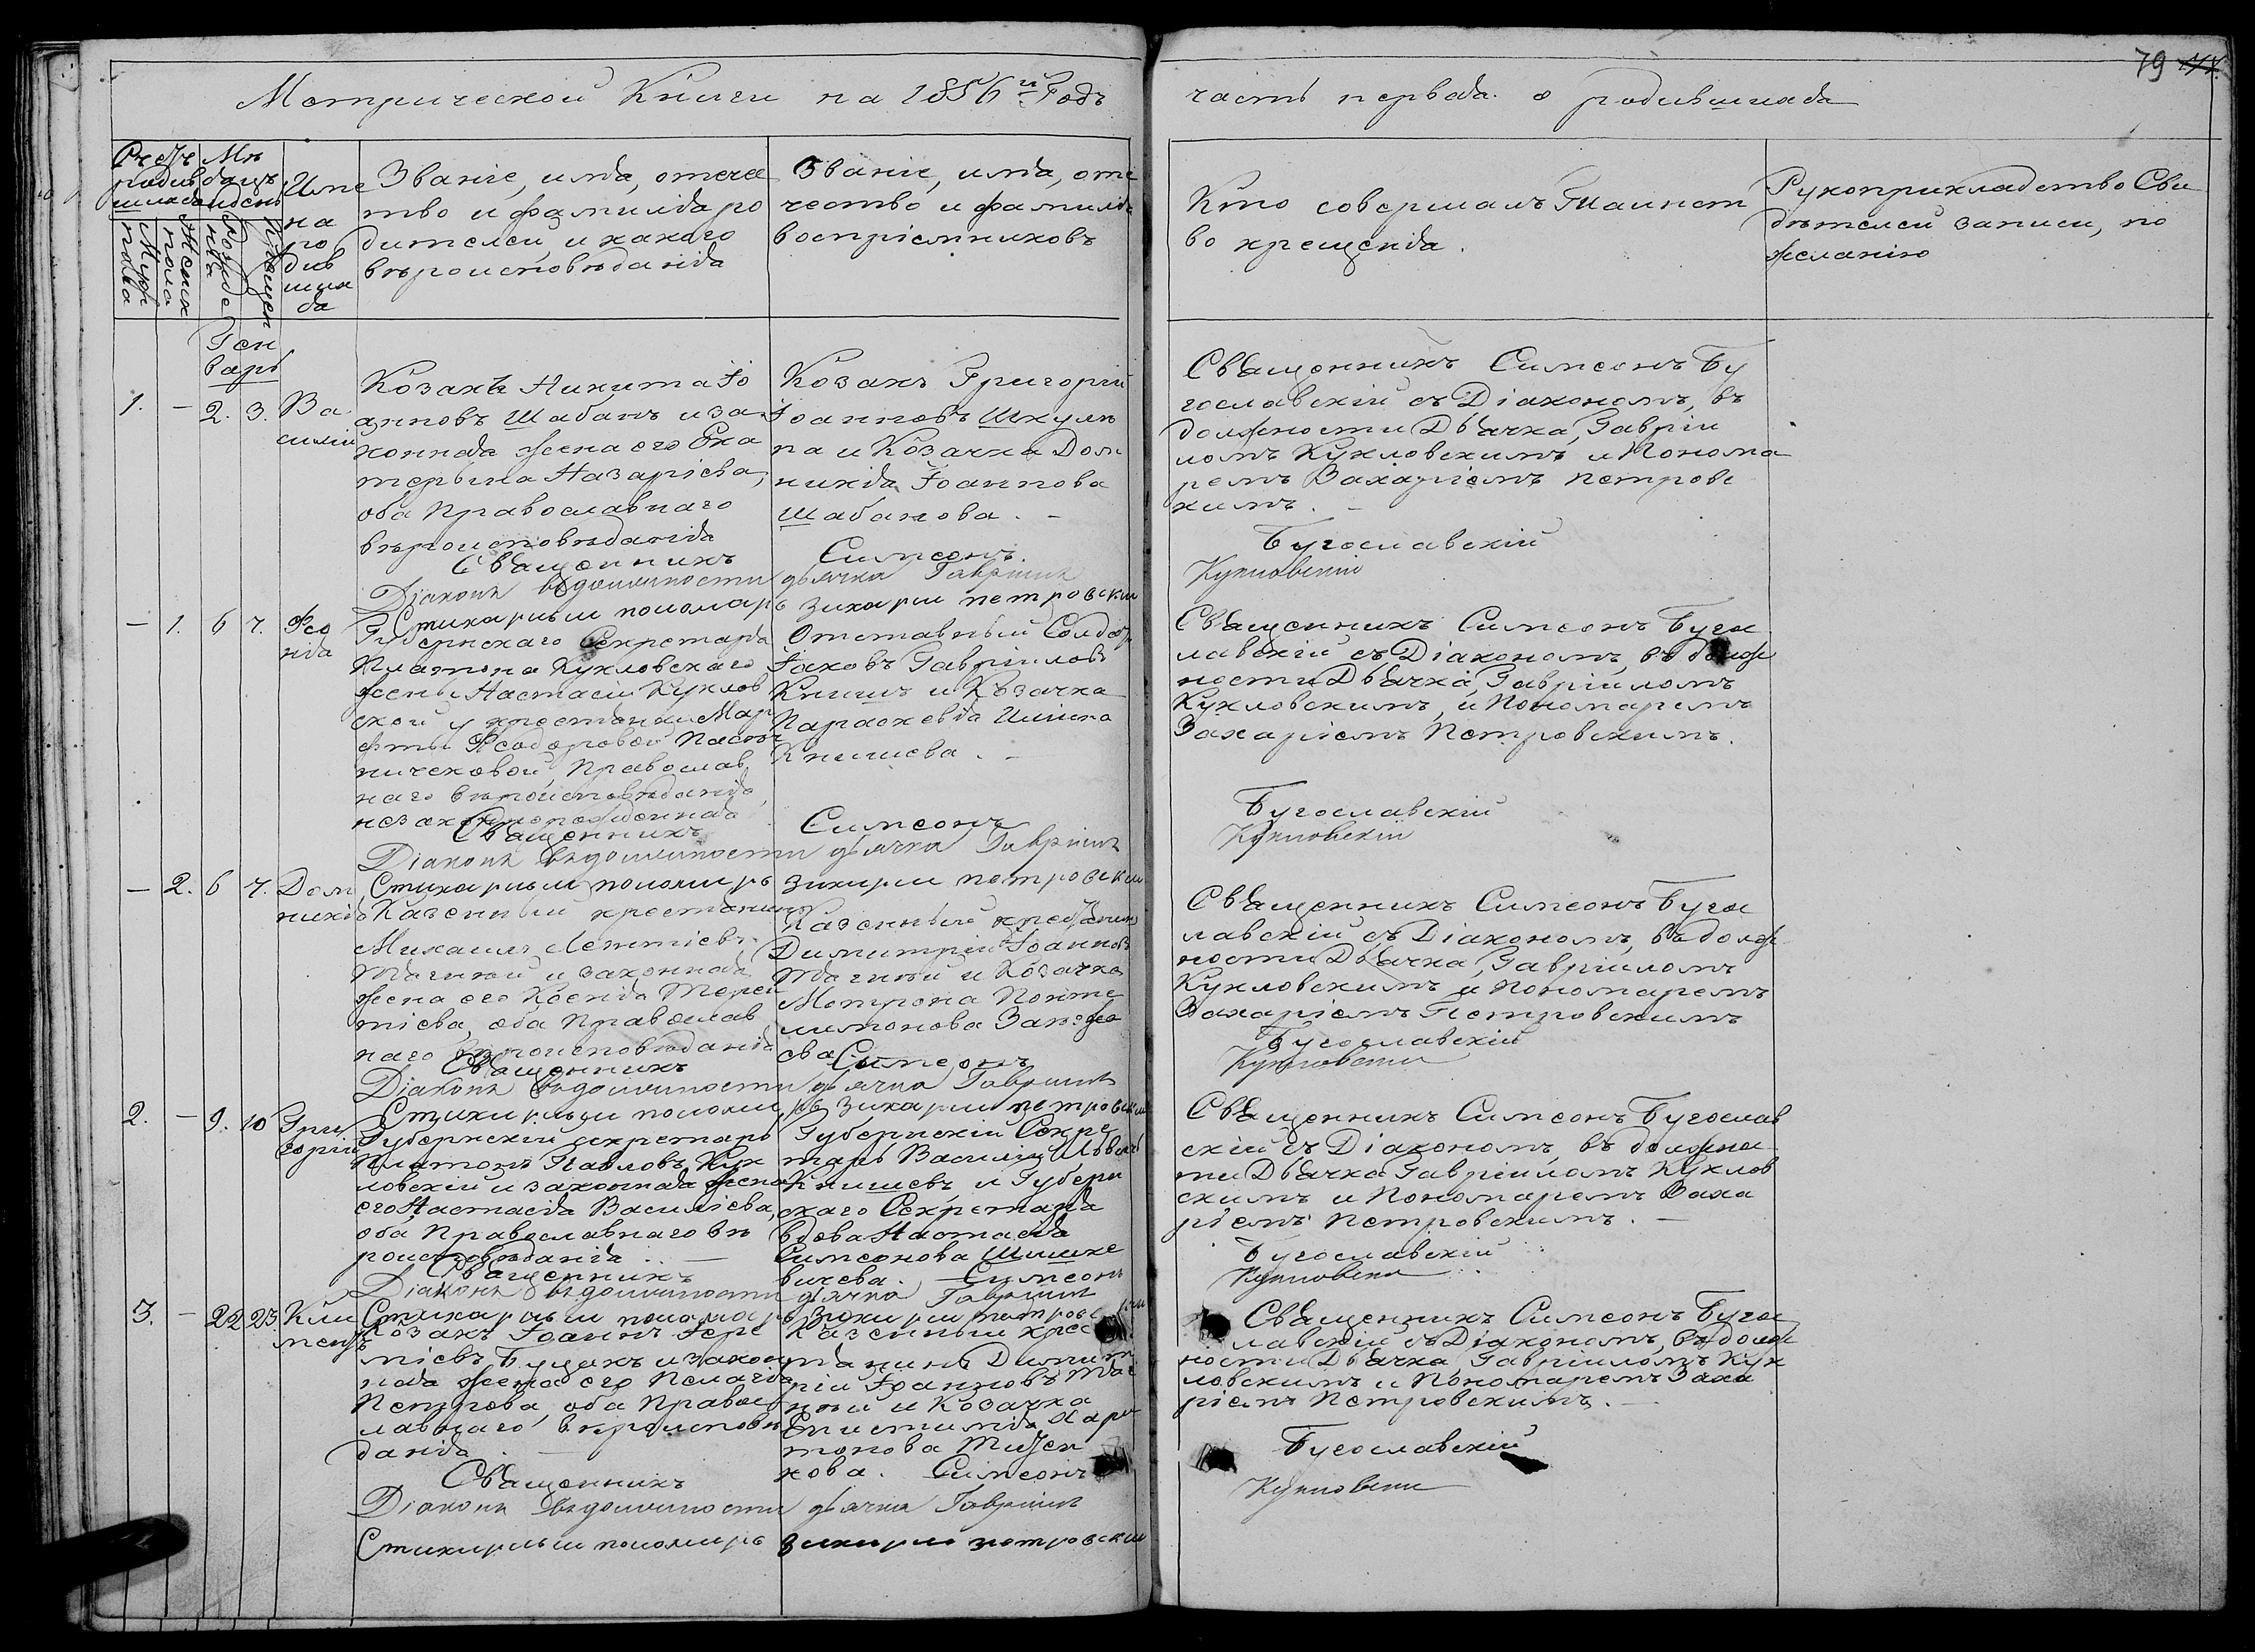 79
Метрической Книги на 1856й Годъ
часть первая. о родившихся
Счетъ родив
шихся
Мужеска
пола
Женска
пола
Мѣ
сяцъ
и день
Рожде
нія
Крещен
Име
на
ро
див
ших
ся
Званіе, имя, отече
тво и фамилія ро
дителей, и какого
вѣроисповѣданія
Званіе, имя, оте
чество и фамилія
воспріемниковъ
Кто совершалъ Таинст
во крещенія.
Рукоприкладство Сви
дѣтелей записи, по
желанію
Ген
варь
1. — 2. 3. Ва
силій
Козакъ Никита Іо
анновъ Шабанъ и за
конная жена его Ека
терина Назаріева,
оба Православнаго
вѣроисповѣданія
Козакъ Григорій
Іоанновъ Шкуля
па и Козачка Дом
никія Іоаннова
Шабанова. —
Священникъ Симеонъ Бу
гославскій съ Діакономъ, въ
должности Дьячка, Гавріи
ломъ Кукловскимъ и Понома
ремъ Захаріемъ Петровс
кимъ. —
Священникъ Симеонъ Бугославскій
Діаконъ въ должности дьячка Гавріилъ Кукловскій
Стихарный пономарь Захарии петровскии
— 1. 6 7. Фео
нія
Губернскаго Секретаря
Платона Кукловскаго
жены Настасіи Куклов
ской у крестьянки Мар
фты Феодоровой
Православ
наго вѣроисповѣданія,
незаконнорожденная
Отставный Солдатъ
Іаковъ Гавріиловъ
Книшъ и Козачка
Параскевія
Книшева. —
Священникъ Симеонъ Бугос
лавскій съ Діакономъ, въ долж
ности Дьячка, Гавріиломъ
Кукловскимъ, и Пономаремъ
Захаріемъ Петровскимъ.
Священникъ Симеонъ Бугославскій
Діаконъ въ должности дьячка Гавріилъ Кукловскій
Стихарныи пономарь Захарии петровскии
— 2. 6 7. Дом
никія
Казенный крестьянинъ
Михаилъ Леонтіевъ
Тягный и законная
жена его Ксенія Терен
тіева, оба Православ
наго вѣроисповѣданія
Казенный крестьянинъ
Димитрій Іоанновъ
Тягный и Козачка
Матрона
ева
Священникъ Симеонъ Бугос
лавскій съ Діакономъ, въ долж
ности Дьячка, Гавріиломъ
Кукловскимъ и Пономаремъ
Захаріемъ Петровскимъ
Священникъ Симеонъ Бугославскій
Діаконъ въ должности дьячка Гавріилъ Кукловскій
Стихарныи пономарь Захарии петровскии
2. — 9. 10 Гри
горій
Губернскій секретарь
Платонъ Павловъ Кук
ловскій и законная жена
его, Настасія Василіева,
оба Православнаго вѣ
роисповѣданія. —
Губернскій Секре
тарь Василій
Книшевъ, и Губерн
скаго Секретаря
вдова Настасія
Симеонова Шишке
вичева.
Священникъ Симеонъ Бугослав
скій съ Діакономъ, въ должнос
ти Дьячка Гавріиломъ Куклов
скимъ и Пономаремъ Заха
ріемъ Петровскимъ. —
Священникъ Симеонъ Бугославскій
Діаконъ въ должности дьячка Гавріилъ Кукловскій
Стихарныи пономарь Захарии петровскии
3. — 22 23. Кли
ментъ
Козакъ Іоаннъ Іере
міевъ Буцакъ и закон
ная жена его Пелагія
Петрова, оба Правос
лавнаго вѣроисповѣ
данія. —
Казенный крес
тьянинъ Димит
рій Іоанновъ Тяг
ный и Козачка
Епистимія Хари
тонова
нова.
Священникъ Симеонъ Бугос
лавскій съ Діакономъ, въ долж
ности Дьячка Гавріиломъ Кук
ловскимъ и Пономаремъ Заха
ріемъ Петровскимъ. —
Священникъ Симеонъ Бугославскій
Діаконъ въ должности дьячка Гавріилъ Кукловскій
Стихарныи пономарь Захарии петровскии